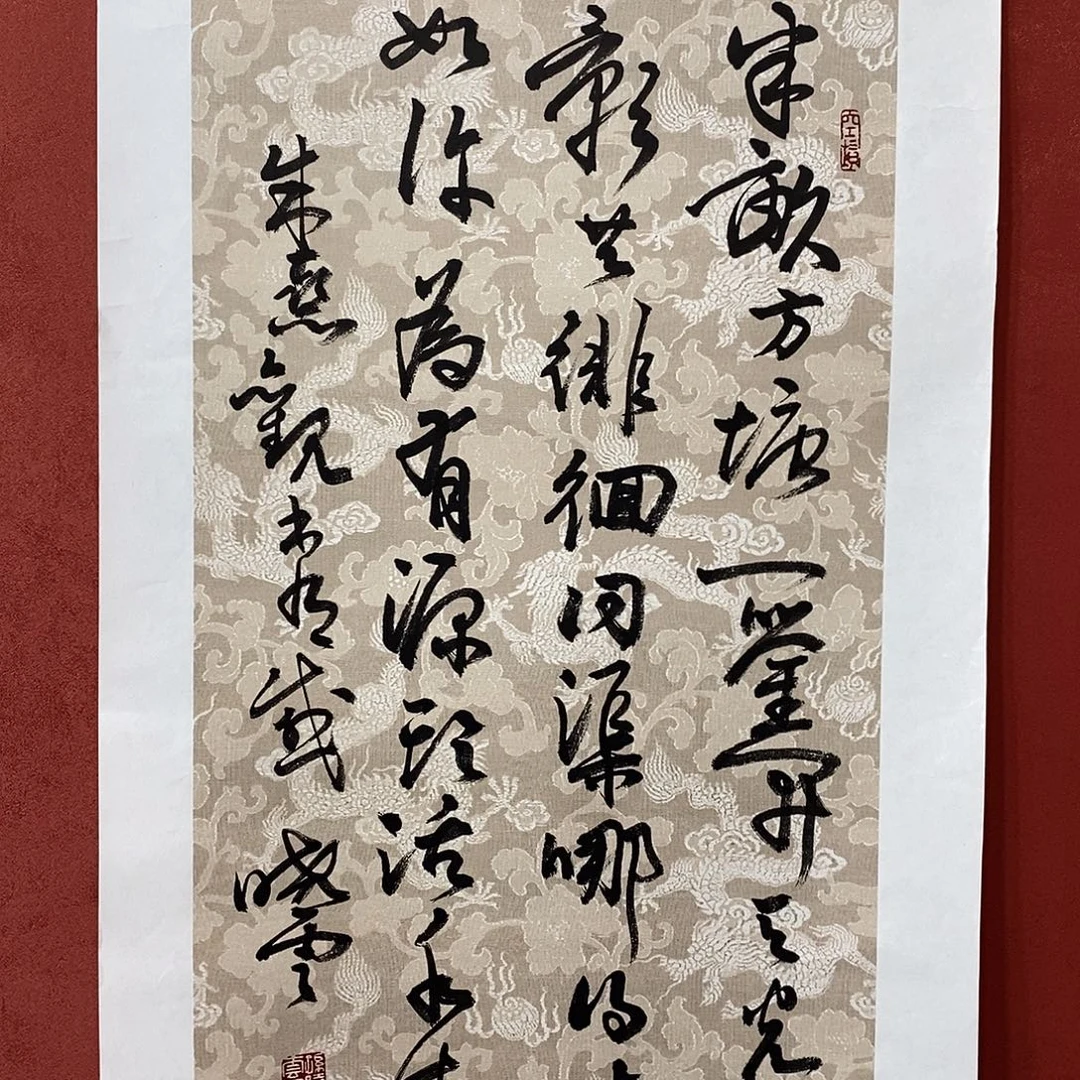 半畝方塘一鑒開天光
影共徘徊問渠哪得
如許為有源頭活水
朱熹觀书有感 曉雲